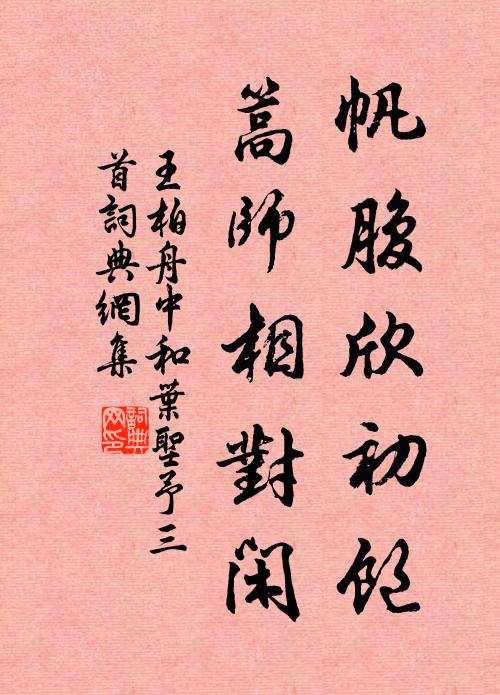 帆腹欣初飽
篙師相對閑
王柏舟中和葉聖予三
首詞典網集
詞典
网印